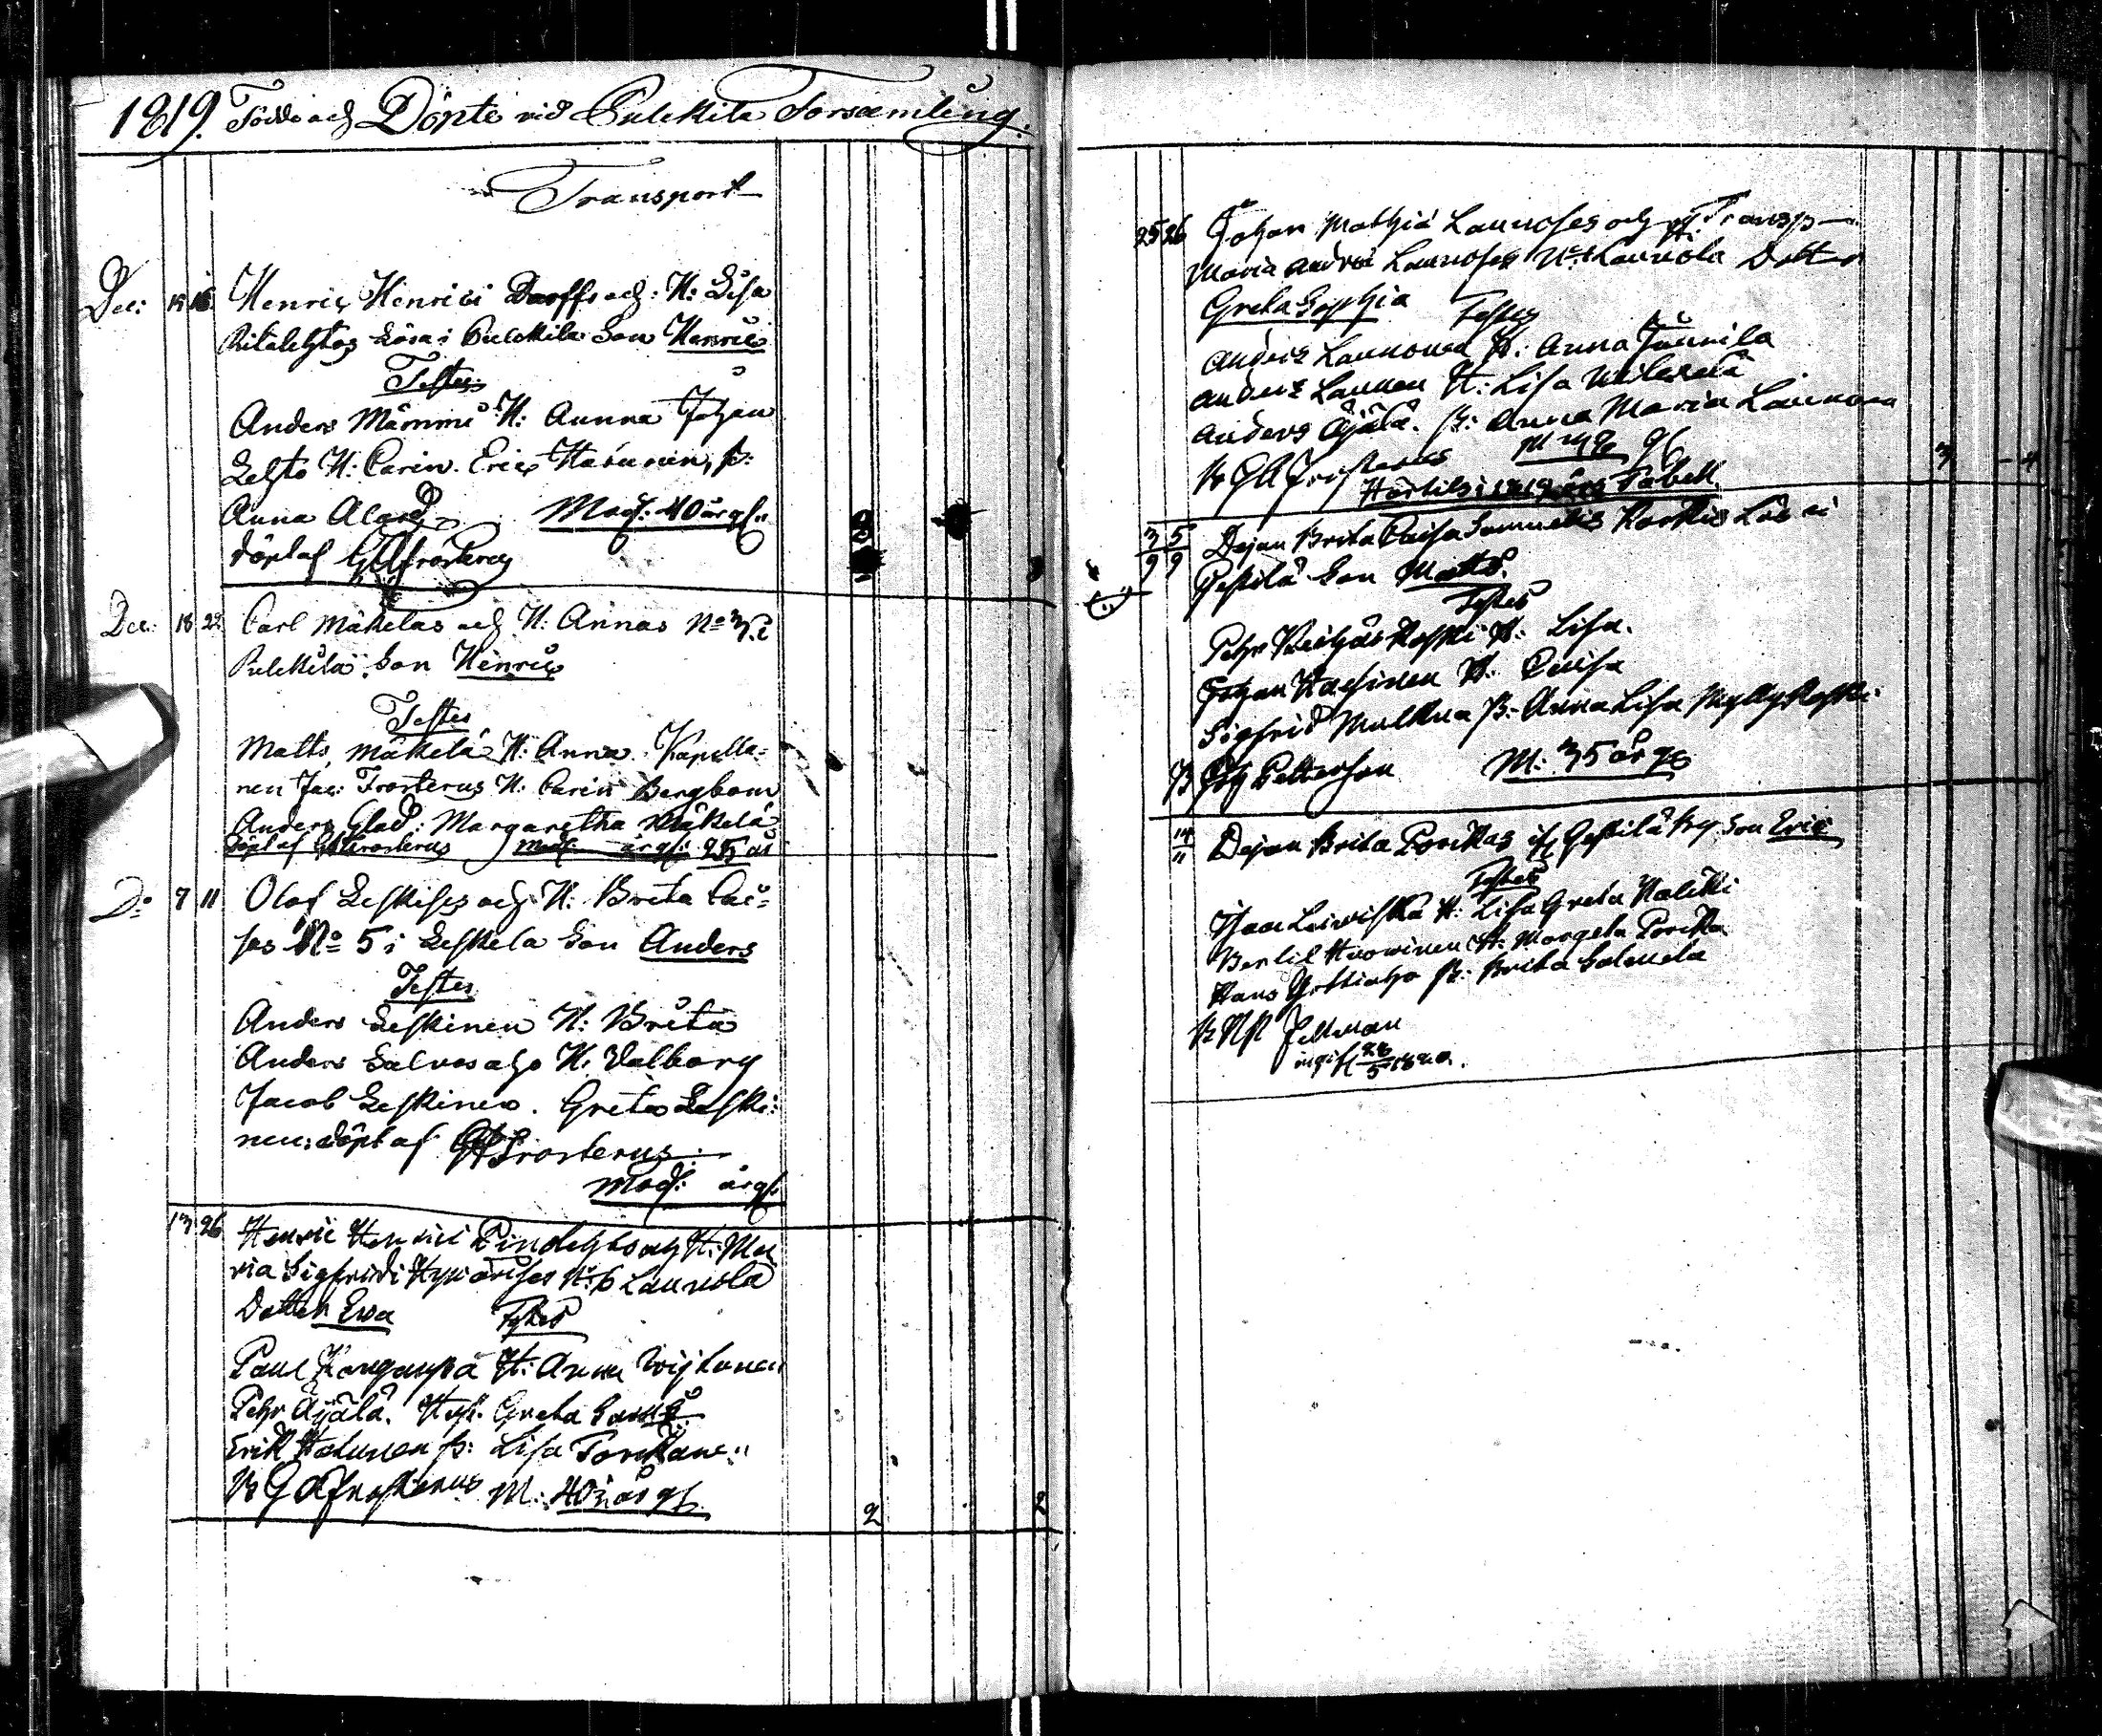 1819. Födde och Döpte vid Pulckila Församling.
Transport
Dec: 15 16 Henric Henrici Darffs och H: Lisa
Pitälehtos Lösa i Pulckila Son Henric
Testes
Anders Mämmi H: Aunna Johan
Lehto H: Carin. Eric Hatunen, p:
Anna Alard Mod: 40 år gl:
döpt af GAFrosterus
Dec: 18 22 Carl Mäkeläs och H: Annas No 3 i
Pulckila Son Henric
Testes
Matts Mäkelä H: Anna. Kapella-
nen Jac: Frosterus H: Carin Bergbom
Anders Glad: Margaretha Mäkelä
Döpt af GAFrosterus Mod: år gl: 25 år
Do 7 11 Olof Leskises och H: Brita Cai-
sas No 5 i Leskela Son Anders
Testes
Anders Leskinen H: Brita
Anders Salvosaho H: Valborg
Jacob Leskinen. Greta Leski-
nen: döpt af GAFrosterus
Mod: år gl:
13 26 Henric Henrici Pindehts och H: Ma
ria Sigfridi No 6 Launola
Dotter Ewa Testes
Paul Kangaspä H: Anna
Pehr Äijälä. Hust: Greta
Erik Hatunen p: Lisa
Br GAFrosterus M: 40 år gl
2 2
25 26 Johan Mathiæ Launoses och H: Transp
Maria Andreæ Launoses No Launola Dotter
Greta Sophia Testes
Anders Launonen H: Anna Junnila
Anders Launon H: Lisa
Anders Äijälä. p: Anna Maria Launonen
Br GAFrosterus M gl
3 4
Hörtil i 1819 års Tabell
3/9 5/9 Dejan Brita Caisa Samuelis Koskis Lös i
Pestilä Son Matts.
Testes
Pehr Koski H: Lisa.
Johan H: Caisa
Sigfrid p: Anna Lisa Myllykoski
B Petterson M: 35 år gl
14/11 Dejan Brita Porckas if Pestilä by Son Eric
Testes
Isaac Leiviskä H: Lisa Greta
Bertil H: Margeta Porcka
Hans p: Brita Salmela
Br Fellman
ingift 28/5 1820.